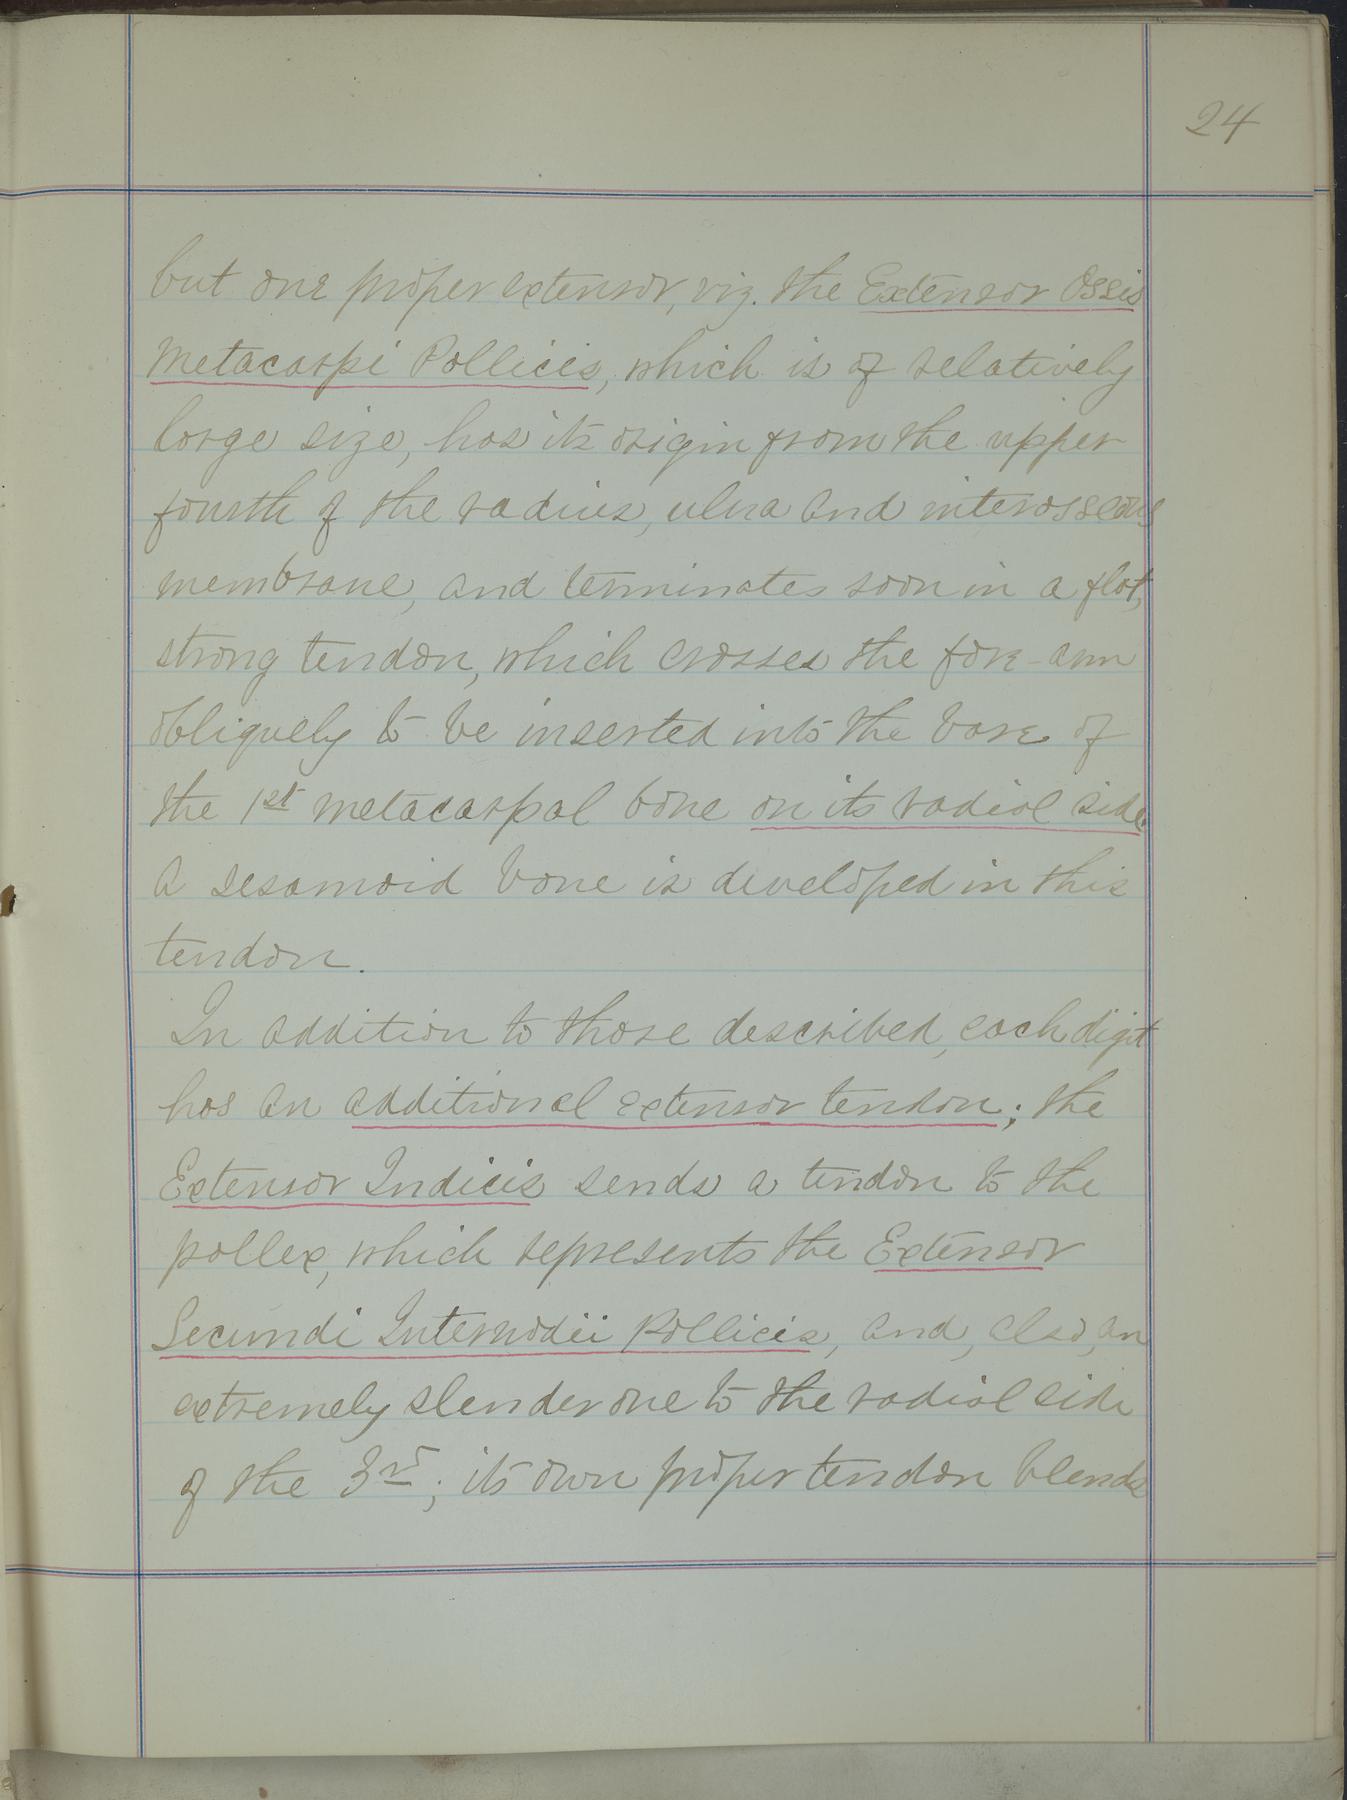 24
but one proper extensor, viz. the Extensor Ossis
Metacarpi Pollicis, which is of relatively
large size, has its origin from the upper
fourth of the radius, ulna and interosseous
membrane, and terminates soon in a flat,
strong tendon, which crosses the fore-arm
obliquely to be inserted into the base of
the 1st metacarpal bone on its radial side.
A sesamoid bone is developed in this
tendon.
In addition to those described, each digit
has an additional extensor tendon; the
Extensor Indicis sends a tendon to the
pollex, which represents the Extensor
Secundi Internodii Pollicis, and, also, an
extremely slender one to the radial side
of the 3rd; its own proper tendon blends